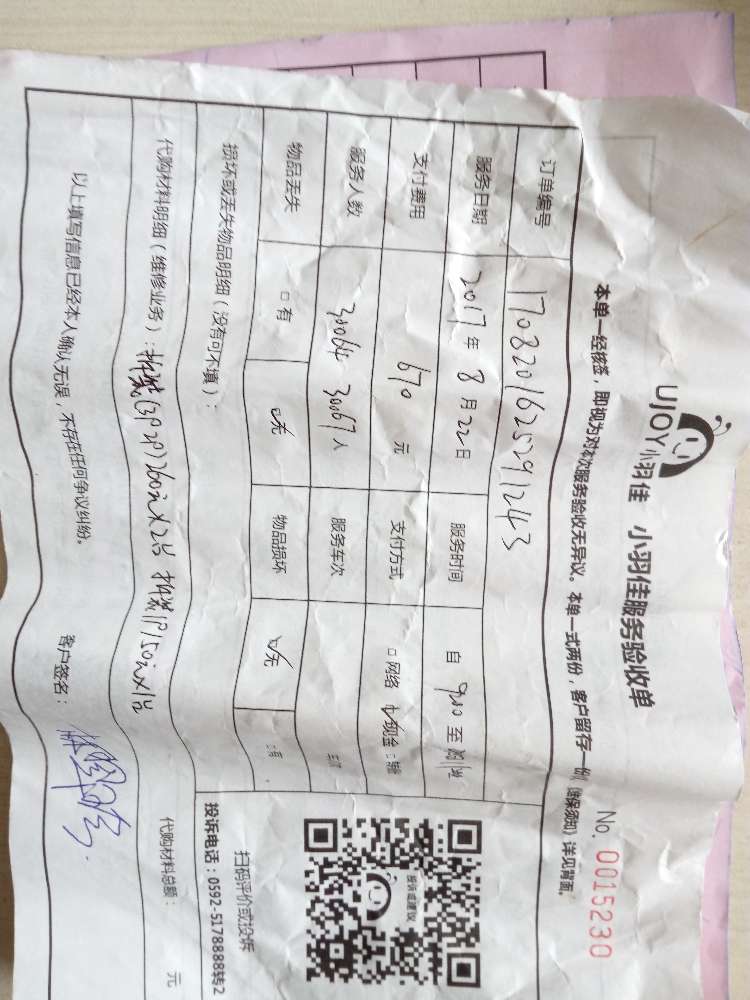 UJOY小羽佳 小羽佳服务验收单
No. 0015230
本单一经核签，即视为对本次服务验收无异议。本单一式两份，客户留存一份《维保须知》详见背面。
订单编号 1708201625291243
服务日期 2017年8月22日 服务时间 自 9:00 至
支付费用 670 元 支付方式 □网络 现金
服务人数 30064 30067 人 服务车次
物品丢失 □有 无 物品损坏 无
损坏或丢失物品明细（没有可不填）：
代购材料明细（维修业务）：拆装(3P 2P)260元×2台 拆装1P150元×1台
代购材料总额： 元
以上填写信息已经本人确认无误，不存在任何争议纠纷。
客户签名：
投诉或建议
扫码评价或投诉
投诉电话：0592-5178888转2